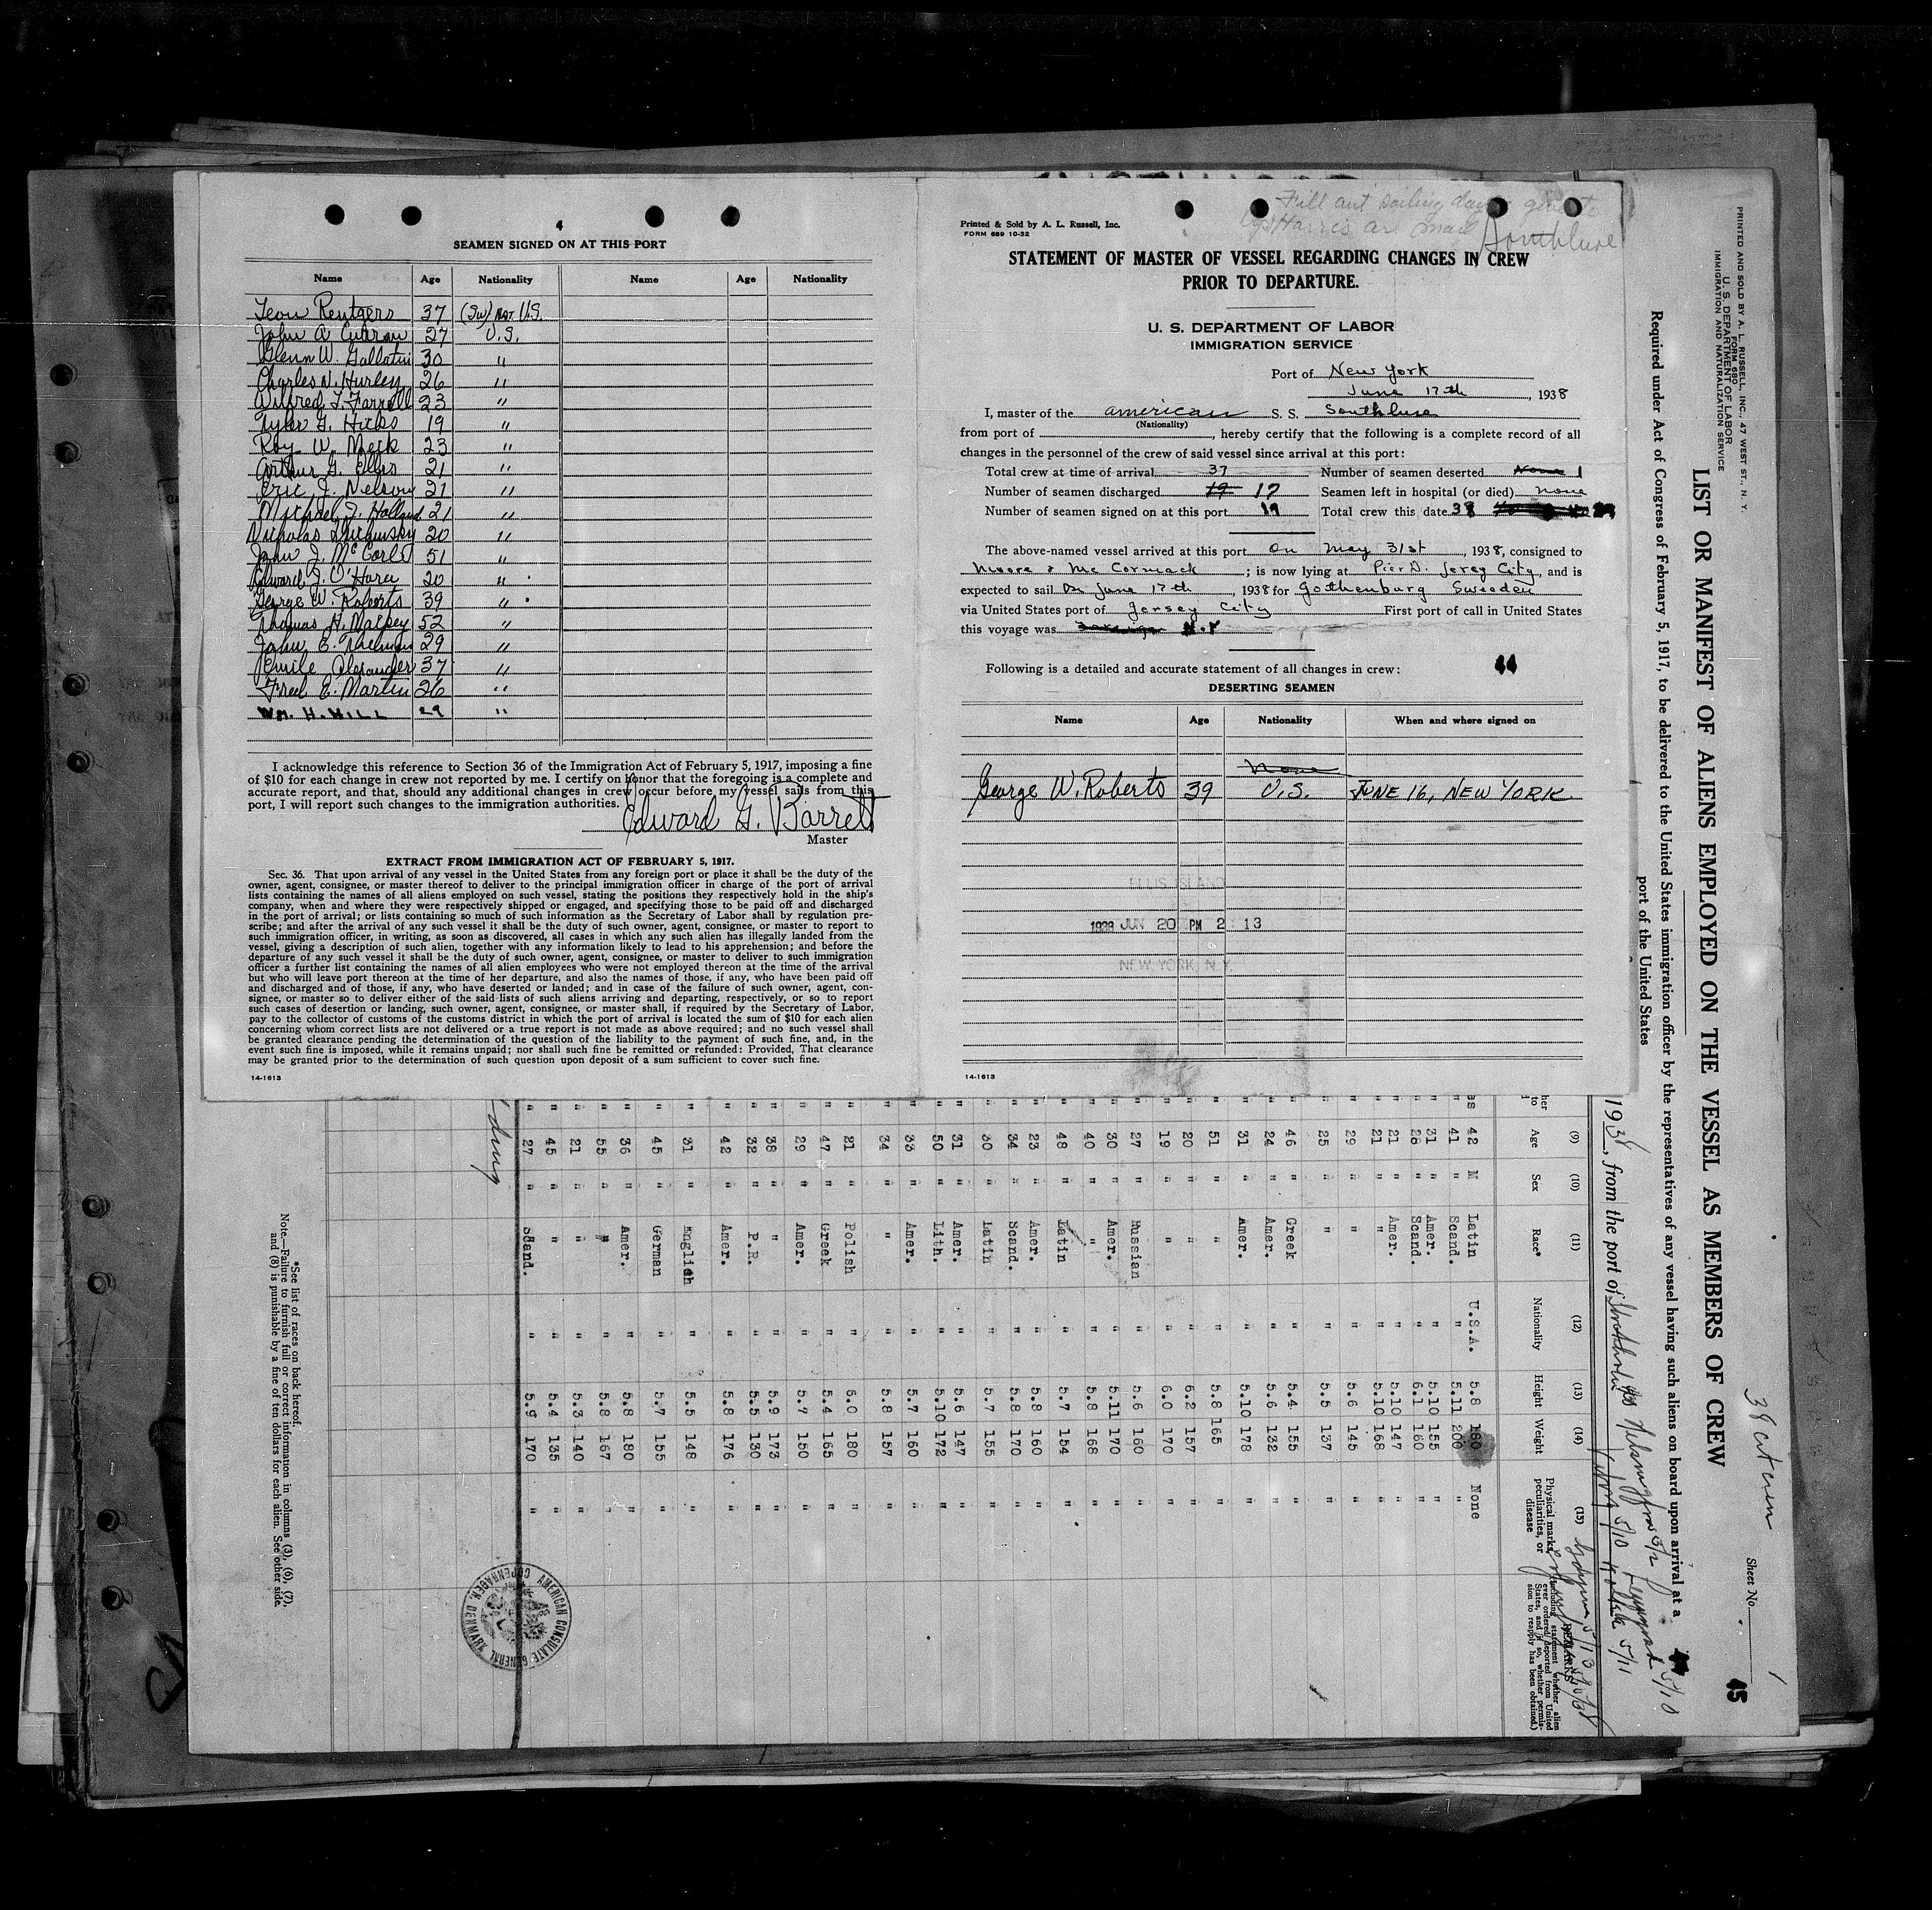 4
SEAMEN SIGNED ON AT THIS PORT
Name Age Nationality Name Age Nationality
Leon Rentgers 37 (Sw) Nat. U.S.
John A Curran 27 U.S.
Glenn W. Gallatin 30 "
Charles N. Hurley 26 "
Wilfred J. Farrell 23 "
Tyler G. Hicks 19 "
Roy W. Meek 23 "
Arthur G. Ellis 21 "
Eric J. Nelson 21 "
Michael J. Holland 21 "
Nicholas 20 "
John J. McCorle 51 "
Edward J. O'Hara 20 "
George W. Roberts 39 "
Thomas H. Malpey 52 "
John E. 29 "
Emile Alexander 37 "
Fred E. Martin 26 "
WM. H. HILL 29 "
I acknowledge this reference to Section 36 of the Immigration Act of February 5, 1917, imposing a fine
of $10 for each change in crew not reported by me. I certify on honor that the foregoing is a complete and
accurate report, and that, should any additional changes in crew occur before my vessel sails from this
port, I will report such changes to the immigration authorities.
Edward G. Barrett
Master
EXTRACT FROM IMMIGRATION ACT OF FEBRUARY 5, 1917.
Sec. 36. That upon arrival of any vessel in the United States from any foreign port or place it shall be the duty of the
owner, agent, consignee, or master thereof to deliver to the principal immigration officer in charge of the port of arrival
lists containing the names of all aliens employed on such vessel, stating the positions they respectively hold in the ship's
company, when and where they were respectively shipped or engaged, and specifying those to be paid off and discharged
in the port of arrival; or lists containing so much of such information as the Secretary of Labor shall by regulation pre-
scribe; and after the arrival of any such vessel it shall be the duty of such owner, agent, consignee, or master to report to
such immigration officer, in writing, as soon as discovered, all cases in which any such alien has illegally landed from the
vessel, giving a description of such alien, together with any information likely to lead to his apprehension; and before the
departure of any such vessel it shall be the duty of such owner, agent, consignee, or master to deliver to such immigration
officer a further list containing the names of all alien employees who were not employed thereon at the time of the arrival
but who will leave port thereon at the time of her departure, and also the names of those, if any, who have been paid off
and discharged and of those, if any, who have deserted or landed; and in case of the failure of such owner, agent, con-
signee, or master so to deliver either of the said lists of such aliens arriving and departing, respectively, or so to report
such cases of desertion or landing, such owner, agent, consignee, or master shall, if required by the Secretary of Labor,
pay to the collector of customs of the customs district in which the port of arrival is located the sum of $10 for each alien
concerning whom correct lists are not delivered or a true report is not made as above required; and no such vessel shall
be granted clearance pending the determination of the question of the liability to the payment of such fine, and, in the
event such fine is imposed, while it remains unpaid; nor shall such fine be remitted or refunded: Provided, That clearance
may be granted prior to the determination of such question upon deposit of a sum sufficient to cover such fine.
14-1613
Fill out sailing day give to
Harris and mail Southlure
Printed & Sold by A. L. Russell, Inc.
FORM 689 10-32
STATEMENT OF MASTER OF VESSEL REGARDING CHANGES IN CREW
PRIOR TO DEPARTURE.
U. S. DEPARTMENT OF LABOR
IMMIGRATION SERVICE
Port of New York
June 17th, 1938
I, master of the american S. S. Southlure
(Nationality)
from port of , hereby certify that the following is a complete record of all
changes in the personnel of the crew of said vessel since arrival at this port:
Total crew at time of arrival 37 Number of seamen deserted None 1
Number of seamen discharged 19 17 Seamen left in hospital (or died) none
Number of seamen signed on at this port 19 Total crew this date 38
The above-named vessel arrived at this port on May 31st, 1938, consigned to
Moore & Mc Cormack ; is now lying at Pier D. Jersey City, and is
expected to sail On June 17th, 1938 for Gothenburg Sweeden
via United States port of Jersey City First port of call in United States
this voyage was N.Y
Following is a detailed and accurate statement of all changes in crew: 44
DESERTING SEAMEN
Name Age Nationality When and where signed on
None
George W. Roberts 39 U.S. JUNE 16, NEW YORK
ELLIS ISLAND
1938 JUN 20 PM 2 13
NEW YORK, N.Y.
14-1613
PRINTED AND SOLD BY A. L. RUSSELL, INC., 47 WEST ST., N. Y.
FORM 680
U. S. DEPARTMENT OF LABOR
IMMIGRATION AND NATURALIZATION SERVICE
Sheet No.
45
LIST OR MANIFEST OF ALIENS EMPLOYED ON THE VESSEL AS MEMBERS OF CREW
Required under Act of Congress of February 5, 1917, to be delivered to the United States immigration officer by the representatives of any vessel having such aliens on board upon arrival at a
port of the United States
1938, from the port of
(9) (10) (11) (12) (13) (14) (15)
Age Sex Race* Nationality Height Weight Physical marks, peculiarities, or disease
REMARKS
(Including statement whether alien ever ordered deported from United States, and if so, whether permission to reapply has been obtained.)
42 M Latin U.S.A. 5.8 180 None
41 " Scand. " 5.11 200 "
31 " Amer. " 5.10 155 "
28 " Scand. " 6.1 160 "
21 " Amer. " 5.10 147 "
21 " " " 5.10 168 "
29 " " " 5.6 145 "
25 " " " 5.5 137 "
46 " Greek " 5.4 155 "
24 " Amer. " 5.6 132 "
31 " Amer. " 5.10 178 "
51 " " " 5.8 165 "
20 " " " 6.2 157 "
19 " " " 6.0 170 "
27 " Russian " 5.6 160 "
30 " Amer. " 5.11 170 "
40 " " " 5.8 168 "
48 " Latin " 5.7 154 "
23 " Amer. " 5.8 160 "
34 " Scand. " 5.8 170 "
30 " Latin " 5.7 155 "
31 " Amer. " 5.6 147 "
50 " Lith. " 5.10 172 "
33 " Amer. " 5.7 160 "
34 " " " 5.8 157 "
21 " Polish " 6.0 180 "
47 " Greek " 5.4 165 "
29 " Amer. " 5.7 150 "
38 " " " 5.9 173 "
32 " P.R. " 5.5 130 "
42 " Amer. " 5.8 176 "
31 " English " 5.5 148 "
45 " German " 5.7 155 "
36 " Amer. " 5.8 180 "
55 " " " 5.8 167 "
21 " " " 5.3 140 "
45 " " " 5.4 135 "
27 " Scand. " 5.9 170 "
AMERICAN CONSULATE GENERAL
COPENHAGEN, DENMARK
*See list of races on back hereof.
Note.—Failure to furnish full or correct information in columns (3), (6), (7),
and (8) is punishable by a fine of ten dollars for each alien. See other side.